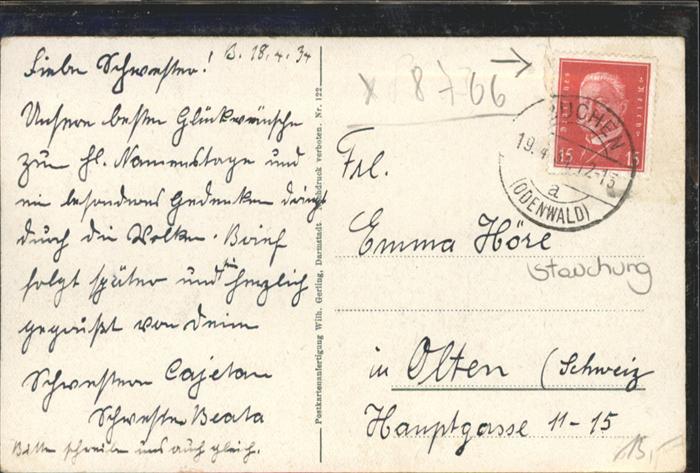 B. 18.4.34
Liebe Schwester!
Unsere besten Glückwünsche
zum hl. Namenstage und
ein besonderes Gedenken dringt
durch die Wolken. Brief
folgt später und sei herzlich
gegrüßt von Deinen
Schwestern Cajetan
Schwester Beata
Bitte schreibe uns auch gleich.
Postkartenanfertigung Wilh. Gerling, Darmstadt Nachdruck verboten. Nr. 122
x 8766
Deutsches Reich
15 15
BUCHEN
19.4. 12-13
a
(ODENWALD)
Frl.
Emma Höre
Stauchung
in Olten (Schweiz
Hauptgasse 11-15
15,-